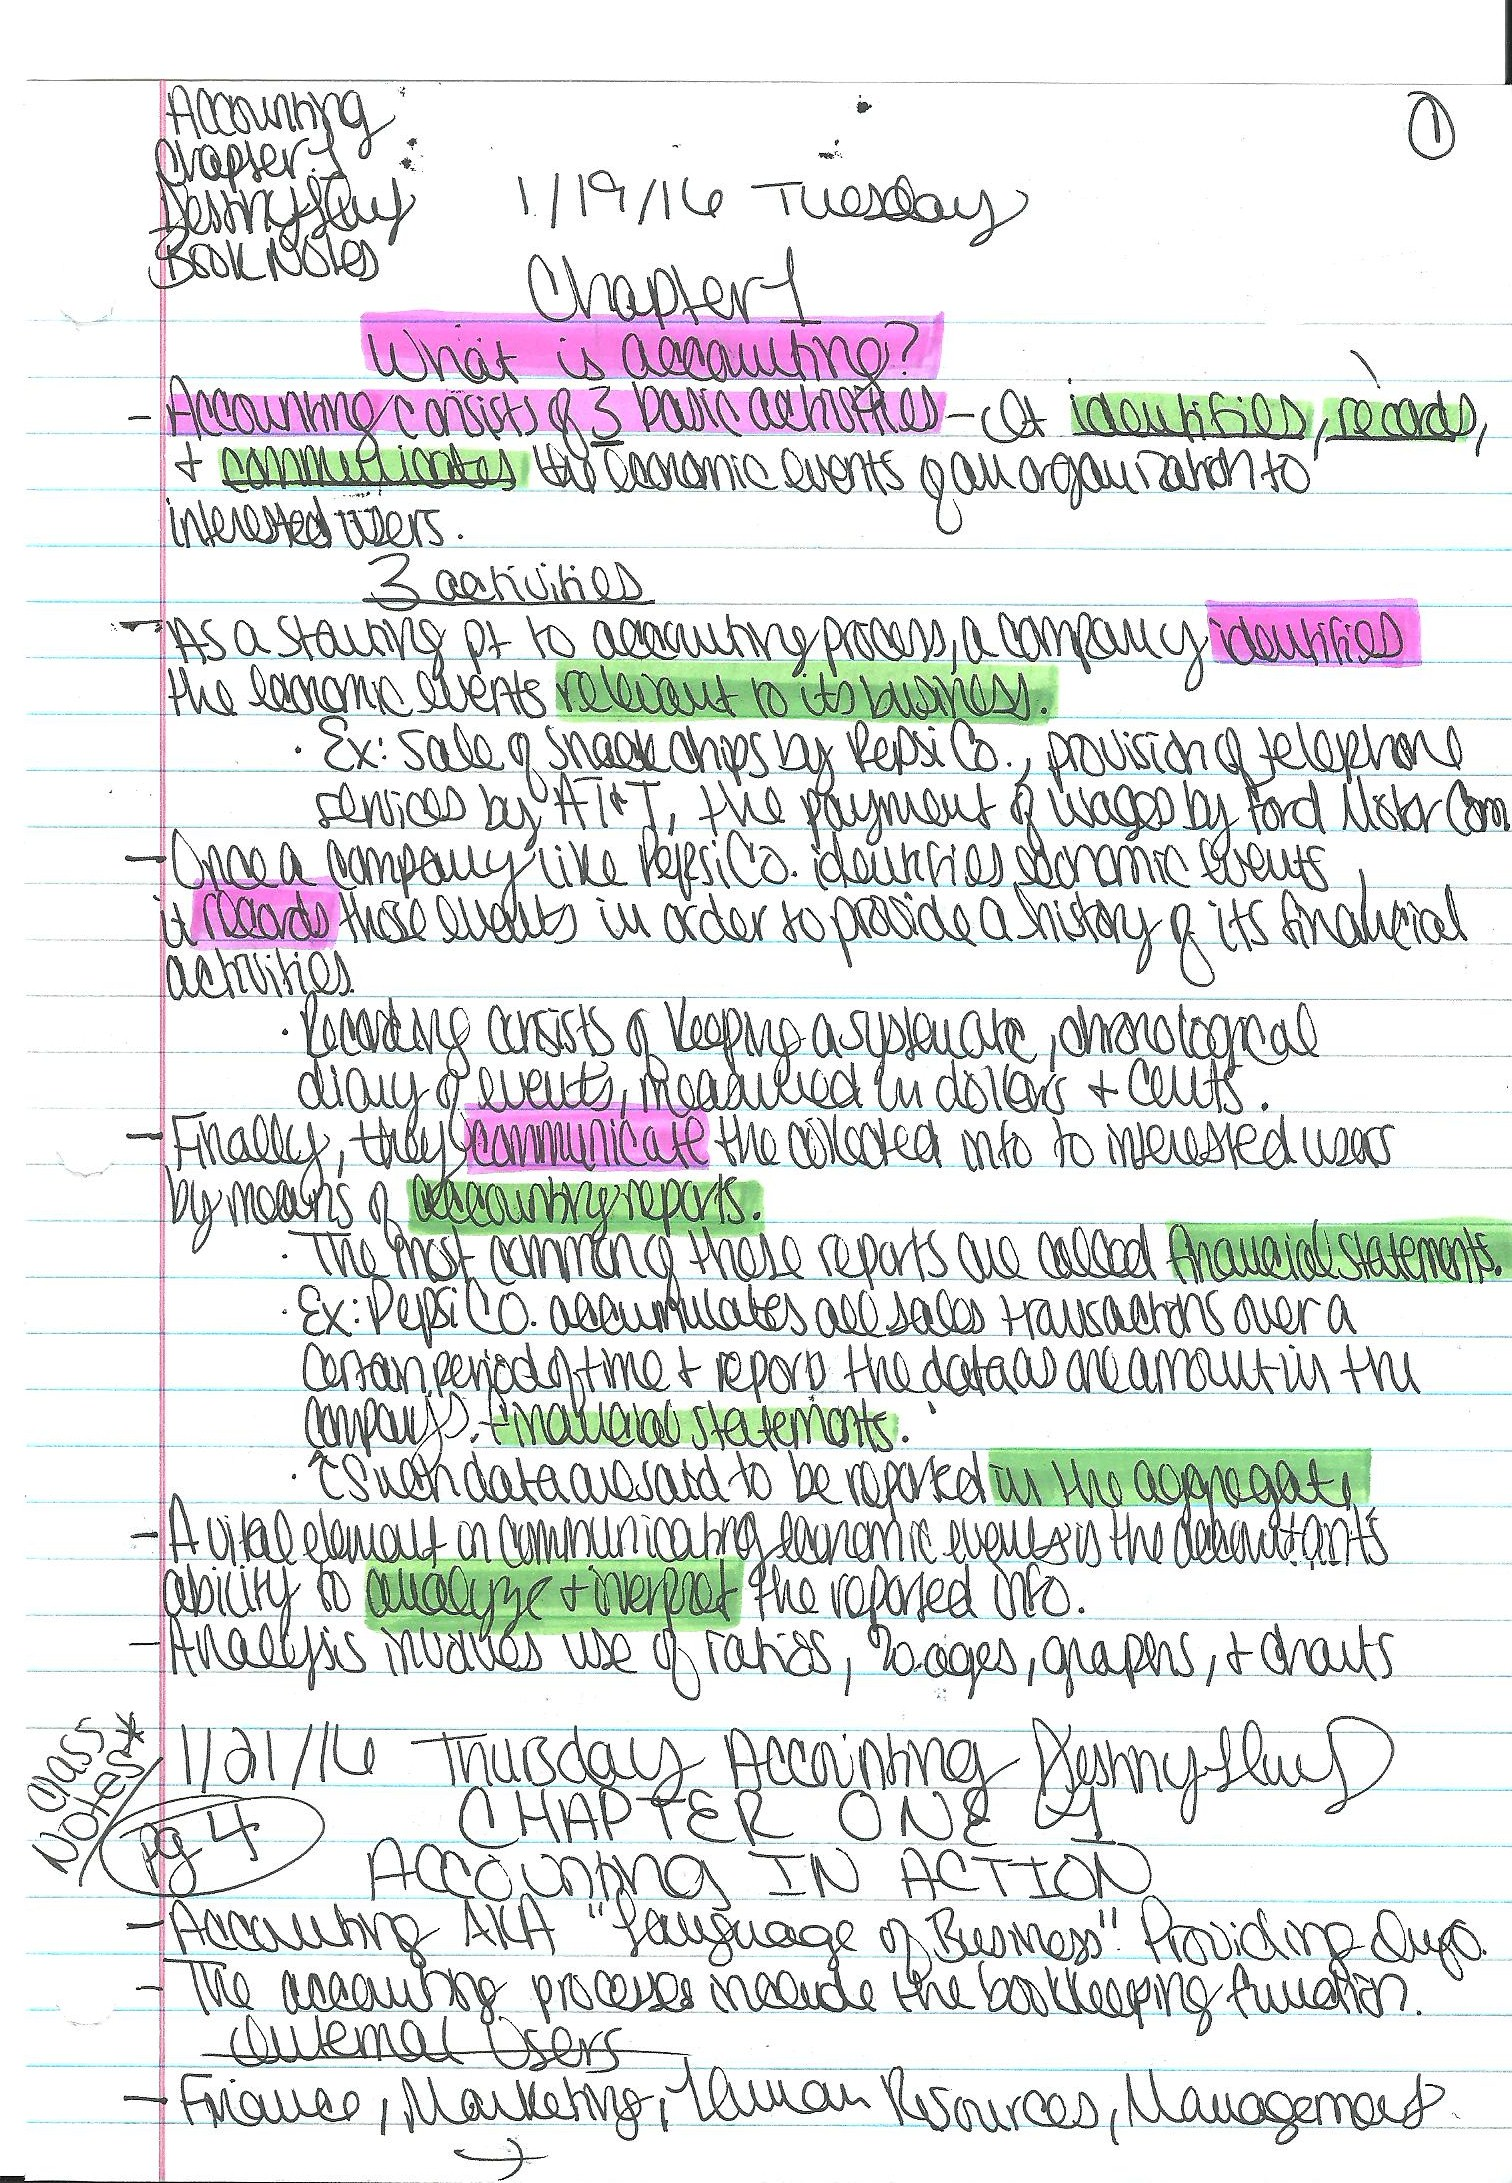 Accounting
①
Chapter 1
Destiny
1/19/16 Tuesday
Book Notes
Chapter 1
What is accounting?
- Accounting consists of 3 basic activities - It identifies, records,
+ communicates the economic events of an organization to
interested users.
3 activities
- As a starting pt to accounting process, a company identifies
the economic events relevant to its business.
· Ex: Sale of snack chips by PepsiCo., provision of telephone
services by AT&T, the payment of wages by Ford Motor Com
- Once a company like PepsiCo. identifies economic events,
it records those events in order to provide a history of its financial
activities.
· Recording consists of keeping a systematic, chronological
diary of events, measured in dollars + cents.
- Finally, they communicate the collected info to interested users
by means of accounting reports.
· The most common of these reports are called financial statements.
· Ex: PepsiCo. accumulates all sales transactions over a
certain period of time + reports the data as one amount in the
company's financial statements.
· Such data are said to be reported in the aggregate
- A vital element in communicating economic events is the accountant's
ability to analyze + interpret the reported info.
- Analysis involves use of ratios, %ages, graphs, + charts
Class Notes*
1/21/16 Thursday Accounting Destiny
pg 4
CHAPTER ONE 1
ACCOUNTING IN ACTION
- Accounting AKA "Language of Business" Providing Info.
- The accounting processes include the bookkeeping function.
Internal Users
- Finance, Marketing, Human Resources, Management
→